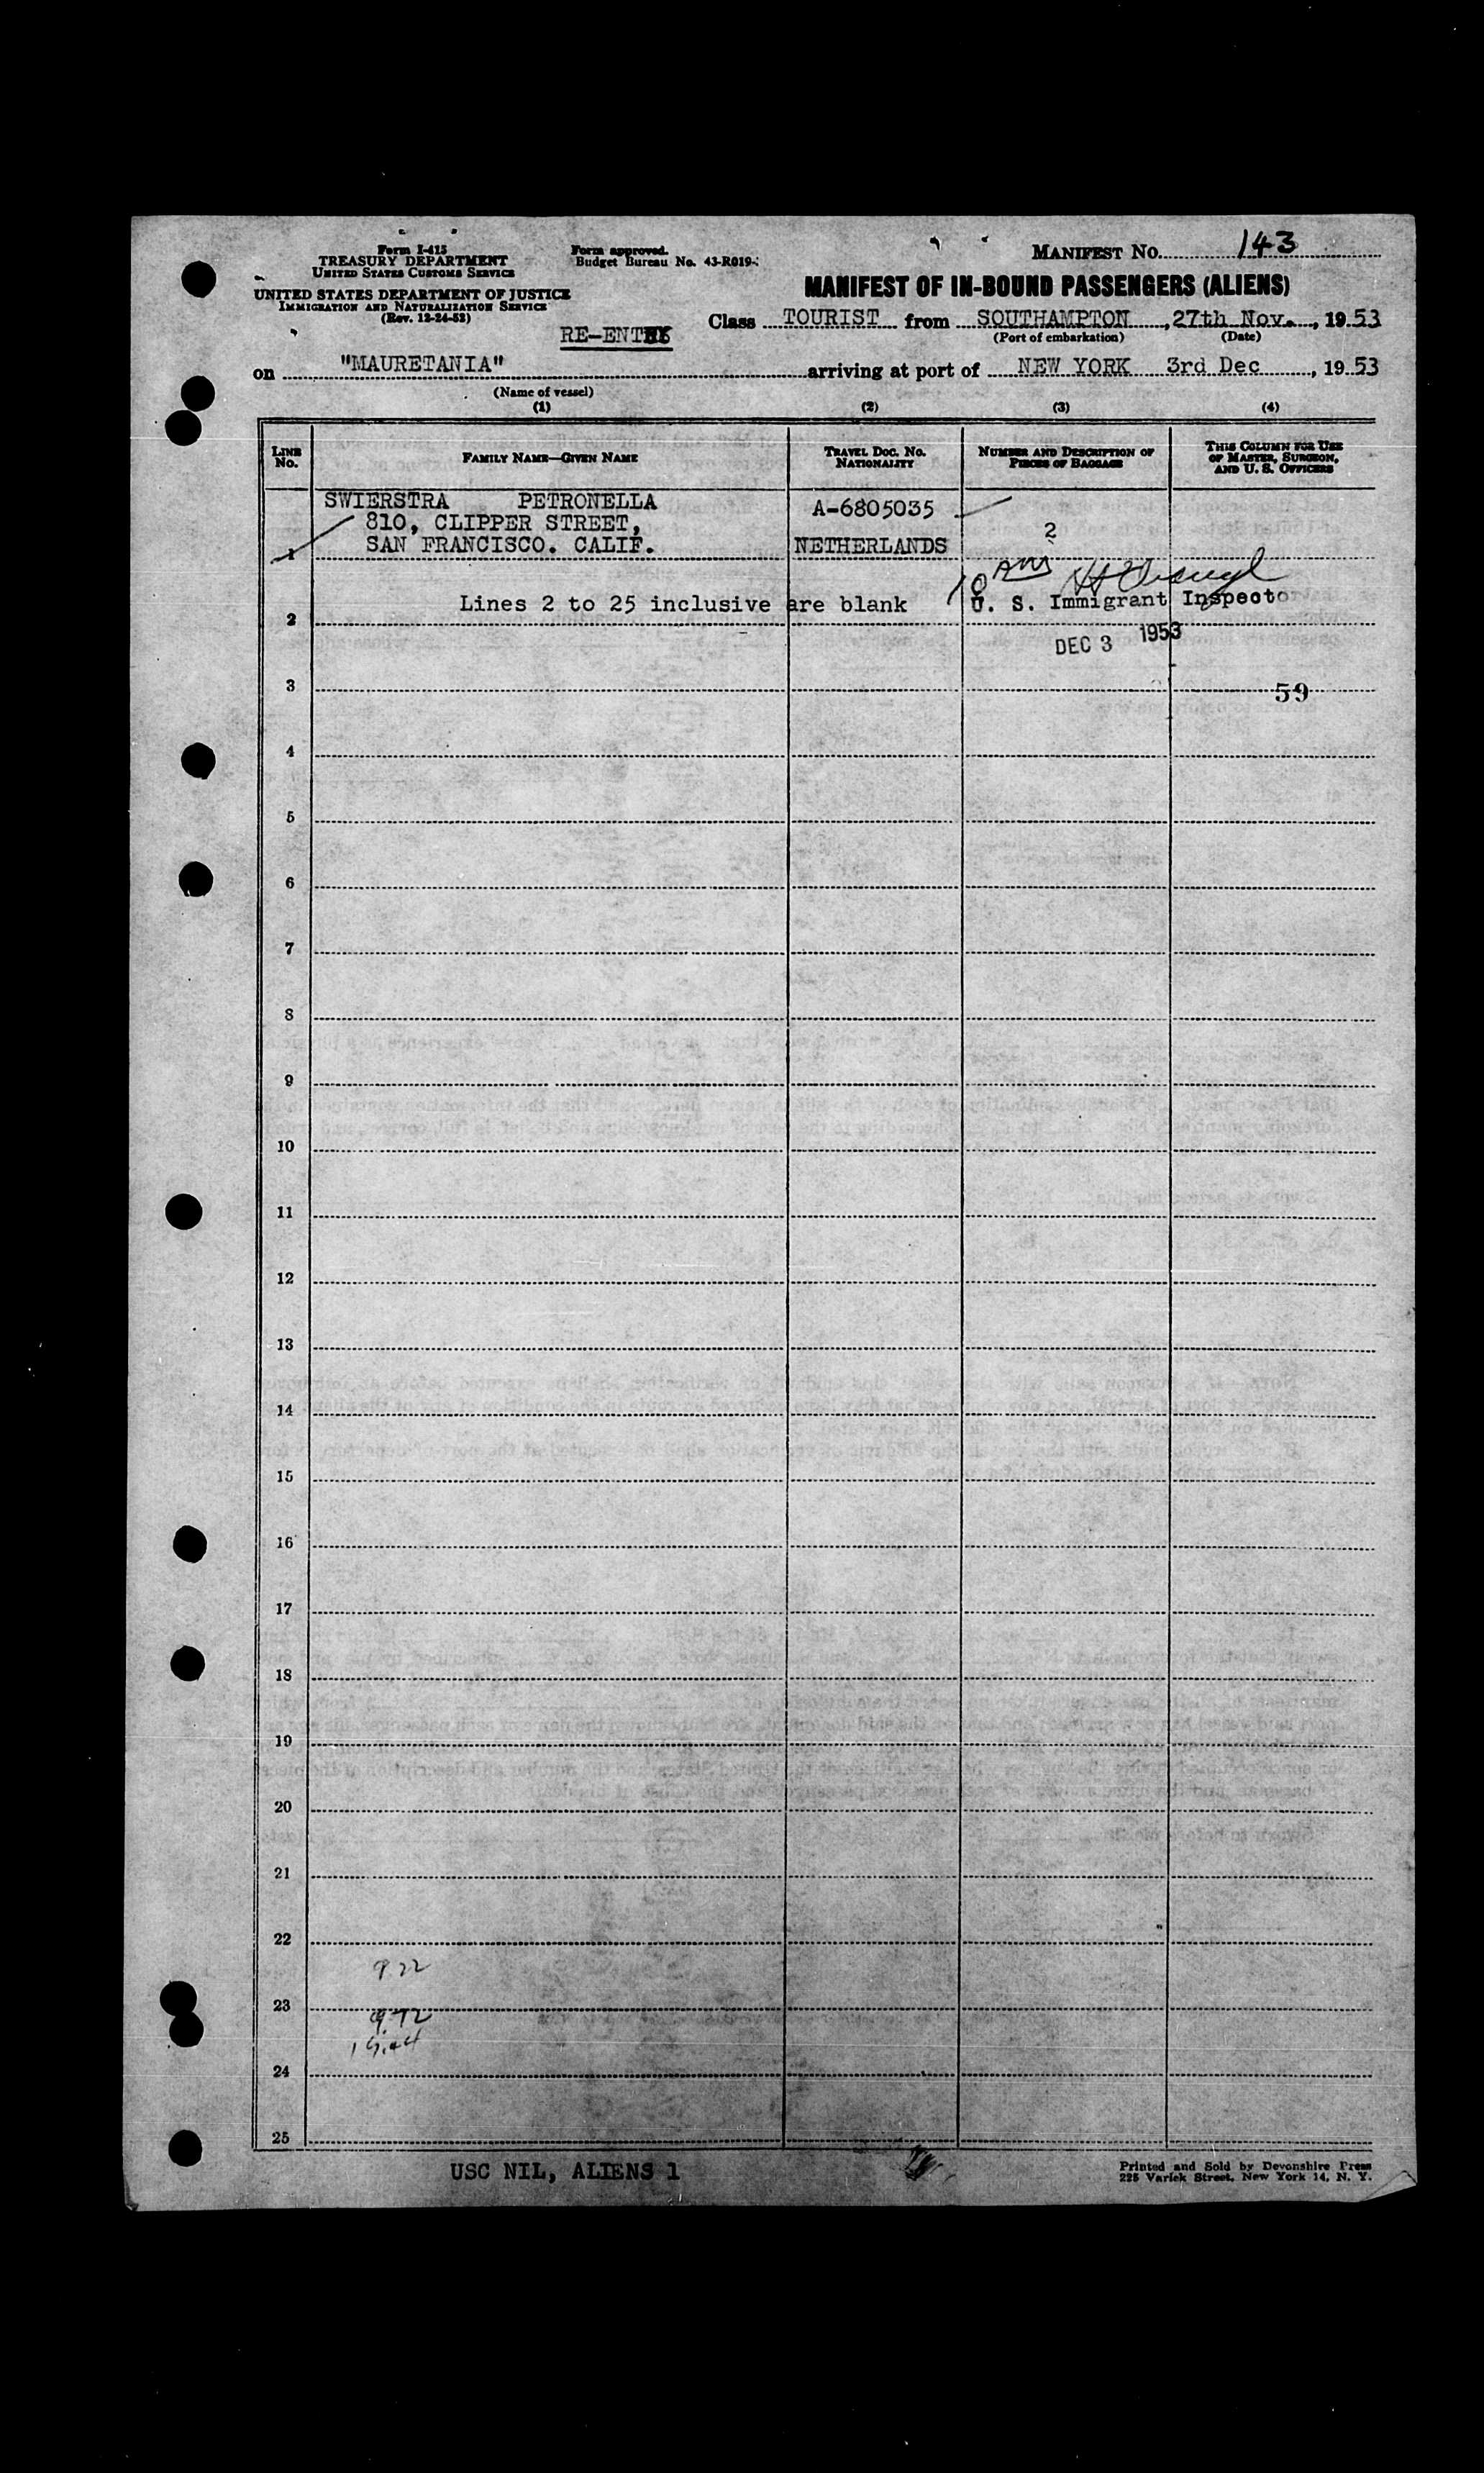 Form I-415
TREASURY DEPARTMENT
UNITED STATES CUSTOMS SERVICE
UNITED STATES DEPARTMENT OF JUSTICE
IMMIGRATION AND NATURALIZATION SERVICE
(Rev. 12-24-52)
Form approved.
Budget Bureau No. 43-R019-
MANIFEST No. 143
MANIFEST OF IN-BOUND PASSENGERS (ALIENS)
RE-ENTRY
Class TOURIST from SOUTHAMPTON, 27th Nov., 1953
(Port of embarkation) (Date)
on "MAURETANIA" arriving at port of NEW YORK 3rd Dec, 1953
(Name of vessel)
(1) (2) (3) (4)
LINE No. FAMILY NAME—GIVEN NAME TRAVEL DOC. NO. NATIONALITY NUMBER AND DESCRIPTION OF PIECES OF BAGGAGE THIS COLUMN FOR USE OF MASTER, SURGEON, AND U. S. OFFICERS
SWIERSTRA PETRONELLA A-6805035
810, CLIPPER STREET, 2
1 SAN FRANCISCO. CALIF. NETHERLANDS
Lines 2 to 25 inclusive are blank U. S. Immigrant Inspecto
2
DEC 3 1953
3 59
4
5
6
7
8
9
10
11
12
13
14
15
16
17
18
19
20
21
22
23
24
25
USC NIL, ALIENS 1
Printed and Sold by Devonshire Press
225 Varick Street, New York 14, N. Y.